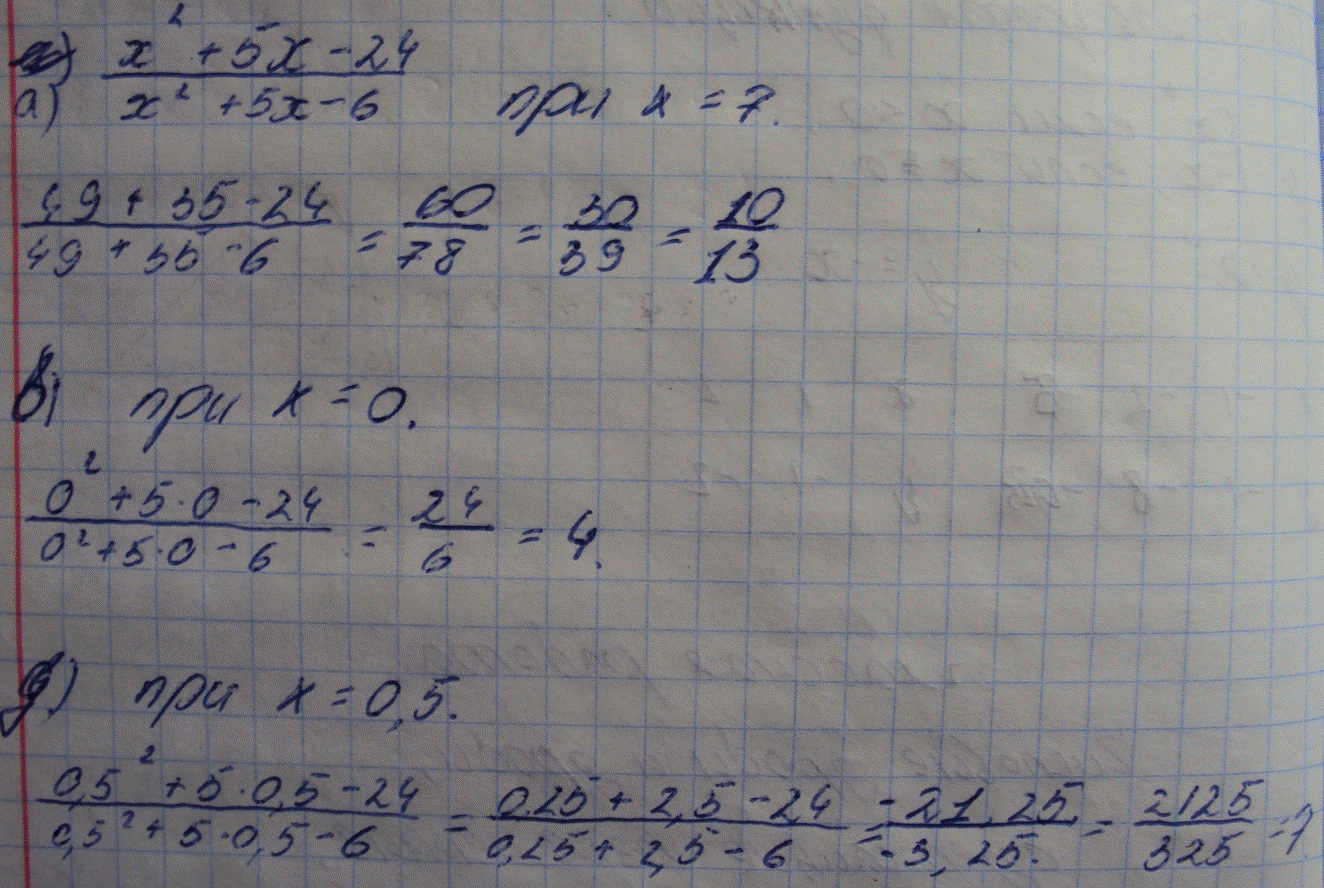 а) x² + 5x - 24 / x² + 5x - 6 при x = 7.
49 + 35 - 24 / 49 + 35 - 6 = 60/78 = 30/39 = 10/13
в) при x = 0.
0² + 5·0 - 24 / 0² + 5·0 - 6 = 24/6 = 4.
д) при x = 0,5.
0,5² + 5·0,5 - 24 / 0,5² + 5·0,5 - 6 = 0.25 + 2,5 - 24 / 0,25 + 2,5 - 6 = -21,25 / -3,25. = 2125/325 = ?